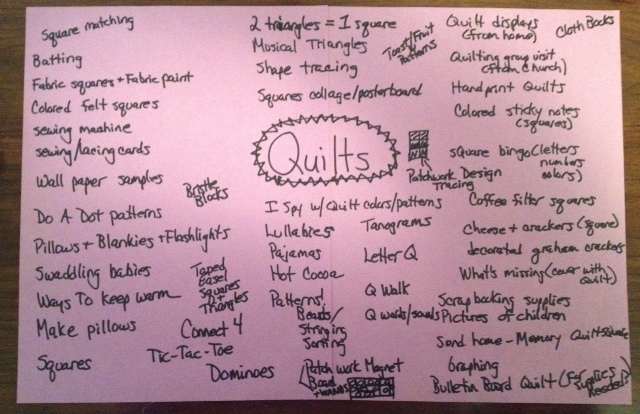 Square matching
Batting
Fabric squares + Fabric paint
Colored felt squares
sewing machine
sewing/lacing cards
Wall paper samples
Bristle
Blocks
Do A Dot patterns
Pillows + Blankies + Flashlights
Swaddling babies
Ways To keep warm
Taped
Easel
Squares
+
Triangles
Make pillows
Connect 4
Squares
Tic-Tac-Toe
Dominoes
2 triangles = 1 square
Musical Triangles
Shape tracing
Toast/Fruit
Patterns
Squares collage/posterboard
Quilts
Patchwork Design
Tracing
I Spy w/ Quilt colors/patterns
Lullabies
Tanograms
Pajamas
Letter Q
Hot Cocoa
Patterns!
Beads/
Stringing
Sorting
Q Walk
Q words/sounds
Patch work Magnet
Board
Quilt displays
(from home)
Cloth Books
Quilting group visit
(from church)
Handprint Quilts
Colored sticky notes
(squares)
square bingo (letters
numbers
colors)
Coffee filter squares
Cheese + crackers (square)
decorated graham crackers
What's missing (cover with
Quilt)
Scrapbooking supplies
Pictures of children
Send home - Memory Quilt Square
Graphing
Bulletin Board Quilt (for supplies
needed)